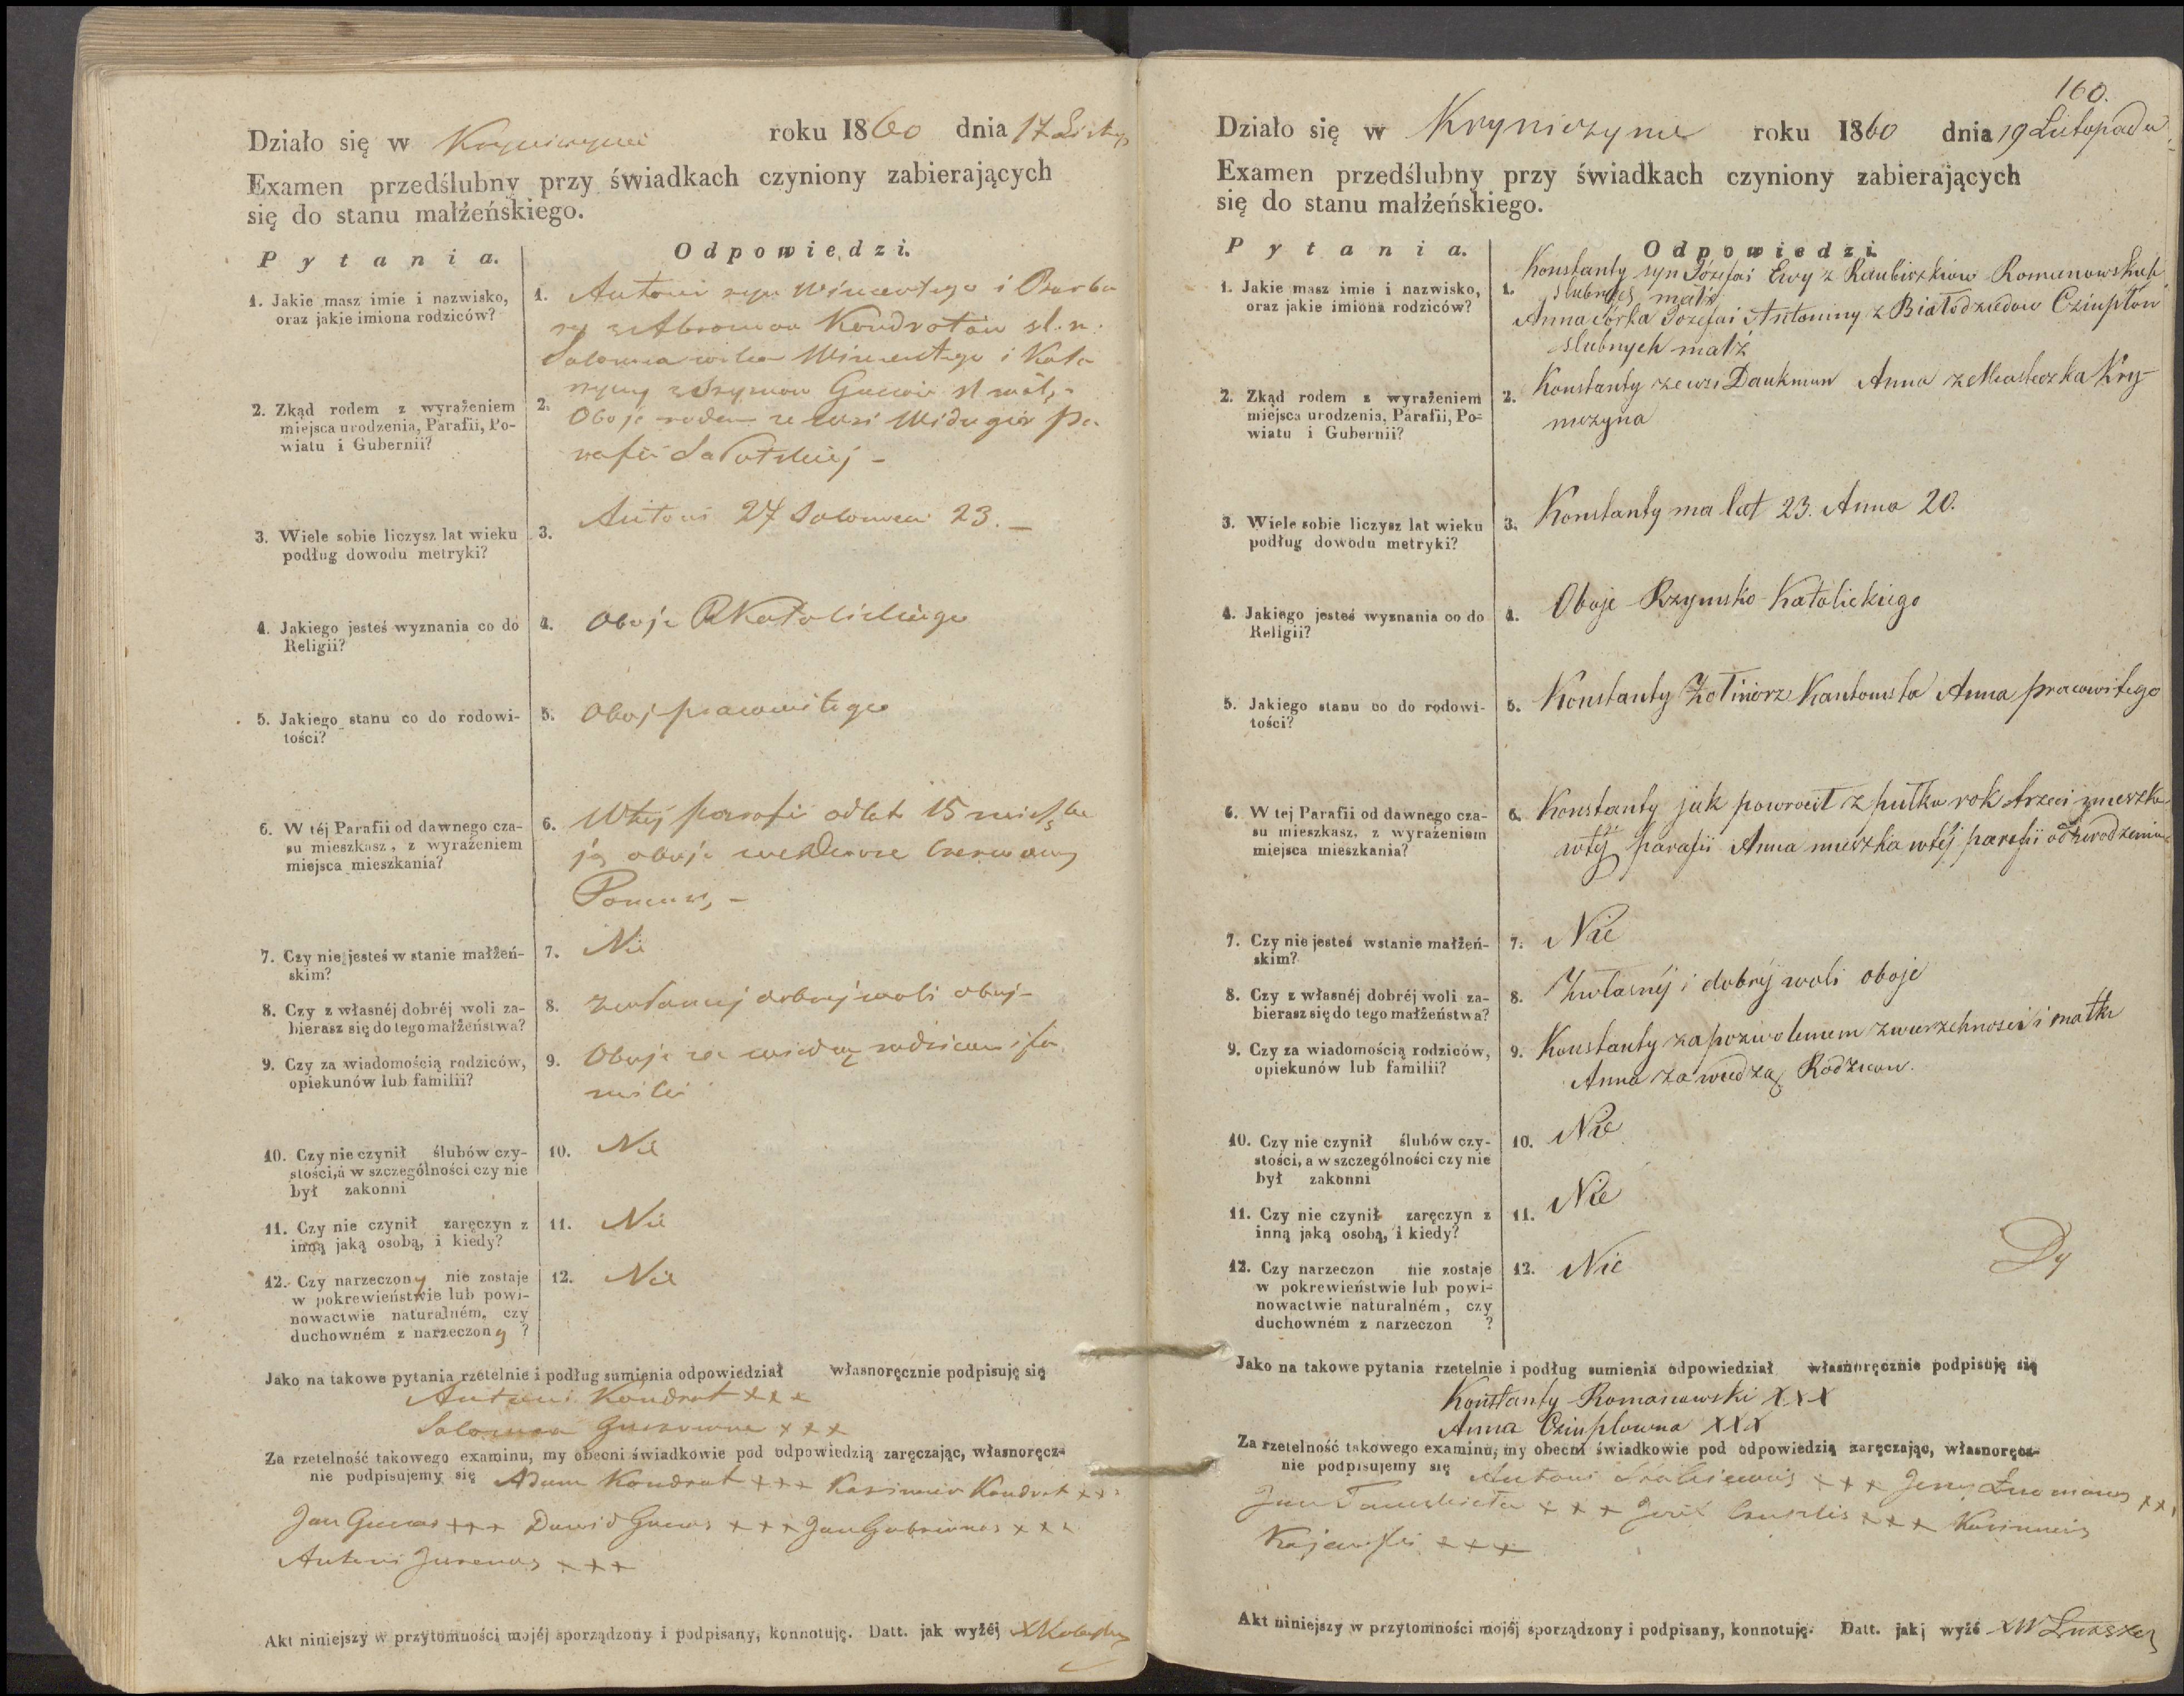 Działo się w Kryniczynie roku 1860 dnia 17 Listop
Examen przedślubny przy świadkach czyniony zabierających
się do stanu małżeńskiego.
Pytania. Odpowiedzi.
1. Jakie masz imie i nazwisko,
oraz jakie imiona rodziców?
1. Antoni syn Wincentego i Barba
ry z Abromow Kondrotów sl. m.
Salomea córka Wincentego i Kata
rzyny z Szymow Gucow sl małż.
2. Zkąd rodem z wyrażeniem
miejsca urodzenia, Parafii, Po-
wiatu i Gubernii?
2. Oboje rodem ze wsi Widugier pa
rafii Sałatskiej -
3. Wiele sobie liczysz lat wieku
podług dowodu metryki?
3. Antoni 27 Salomea 23. -
4. Jakiego jesteś wyznania co do
Religii?
4. Oboje RKatolickiego
5. Jakiego stanu co do rodowi-
tości?
5. Oboj pracowitego
6. W téj Parafii od dawnego cza-
su mieszkasz, z wyrażeniem
miejsca mieszkania?
6. W tej parafii od lat 15 mieszka
ją oboje
7. Czy nie jesteś w stanie małżeń-
skim?
7. Nie
8. Czy z własnéj dobréj woli za-
bierasz się do tego małżeństwa?
8. z własnej dobrej woli oboj-
9. Czy za wiadomością rodziców,
opiekunów lub familii?
9. Oboje za wiedzą rodzicow i fa
milii
10. Czy nie czynił ślubów czy-
stości, a w szczególności czy nie
był zakonni
10. Nie
11. Czy nie czynił zaręczyn z
inną jaką osobą, i kiedy?
11. Nie
12. Czy narzeczony nie zostaje
w pokrewieństwie lub powi-
nowactwie naturalném, czy
duchowném z narzeczoną ?
12. Nie
Jako na takowe pytania rzetelnie i podług sumienia odpowiedział własnoręcznie podpisuję się
Antoni Kondrat x x x
Salomea Gucowna x x x
Za rzetelność takowego examinu, my obecni świadkowie pod odpowiedzią zaręczając, własnoręcz-
nie podpisujemy się Adam Kondrat x x x Kazimier Kondrat x x x
Jan Gucas x x x Dawid Gucas x x x Jan Gabrianas x x x
Antoni Jurenas x x x
Akt niniejszy w przytomności mojéj sporządzony i podpisany, konnotuję. Datt. jak wyżéj
160.
Działo się w Kryniczynie roku 1860 dnia 19 Listopada
Examen przedślubny przy świadkach czyniony zabierających
się do stanu małżeńskiego.
Pytania. Odpowiedzi.
1. Jakie masz imie i nazwisko,
oraz jakie imiona rodziców?
1. Konstanty syn Józefa i Ewy z Raubiszkiow Romanowskich
slubnych małż
Anna córka Jozefa i Antoniny z Białodziedow Cziuplow
slubnych małż
2. Zkąd rodem z wyrażeniem
miejsca urodzenia, Parafii, Po-
wiatu i Gubernii?
2. Konstanty ze wsi Daukmun Anna z Miasteczka Kry-
niczyna
3. Wiele sobie liczysz lat wieku
podług dowodu metryki?
3. Konstanty ma lat 23. Anna 20.
4. Jakiego jesteś wyznania co do
Religii?
4. Oboje Rzymsko-Katolickiego
5. Jakiego stanu co do rodowi-
tości?
5. Konstanty Żołnierz Kantonista Anna pracowitego
6. W tej Parafii od dawnego cza-
su mieszkasz, z wyrażeniem
miejsca mieszkania?
6. Konstanty jak powrocił z pułku rok trzeci zmieszka
w téj parafii Anna mieszka w téj parafii od urodzenia
7. Czy nie jesteś wstanie małżeń-
skim?
7. Nie
8. Czy z własnéj dobréj woli za-
bierasz się do tego małżeństwa?
8. Zwłasnéj i dobréj woli oboje
9. Czy za wiadomością rodziców,
opiekunów lub familii?
9. Konstanty za pozwoleniem zwierzchnosci i matki
Anna za wiedzą Rodzicow.
10. Czy nie czynił ślubów czy-
stości, a w szczególności czy nie
był zakonni
10. Nie
11. Czy nie czynił zaręczyn z
inną jaką osobą, i kiedy?
11. Nie
12. Czy narzeczon nie zostaje
w pokrewieństwie lub powi-
nowactwie naturalném, czy
duchowném z narzeczon ?
12. Nie
Jako na takowe pytania rzetelnie i podług sumienia odpowiedział własnoręcznie podpisuję się
Konstanty Romanowski XXX
Anna Cziuplowna XXX
Za rzetelność takowego examinu, my obecni świadkowie pod odpowiedzią zaręczając, własnoręcz-
nie podpisujemy się Antoni x x x Jerzy x x x
Jan x x x Józef Czuplis x x x Kazimierz
Kajewski x x x
Akt niniejszy w przytomności mojéj sporządzony i podpisany, konnotuję. Datt. jakj wyżé